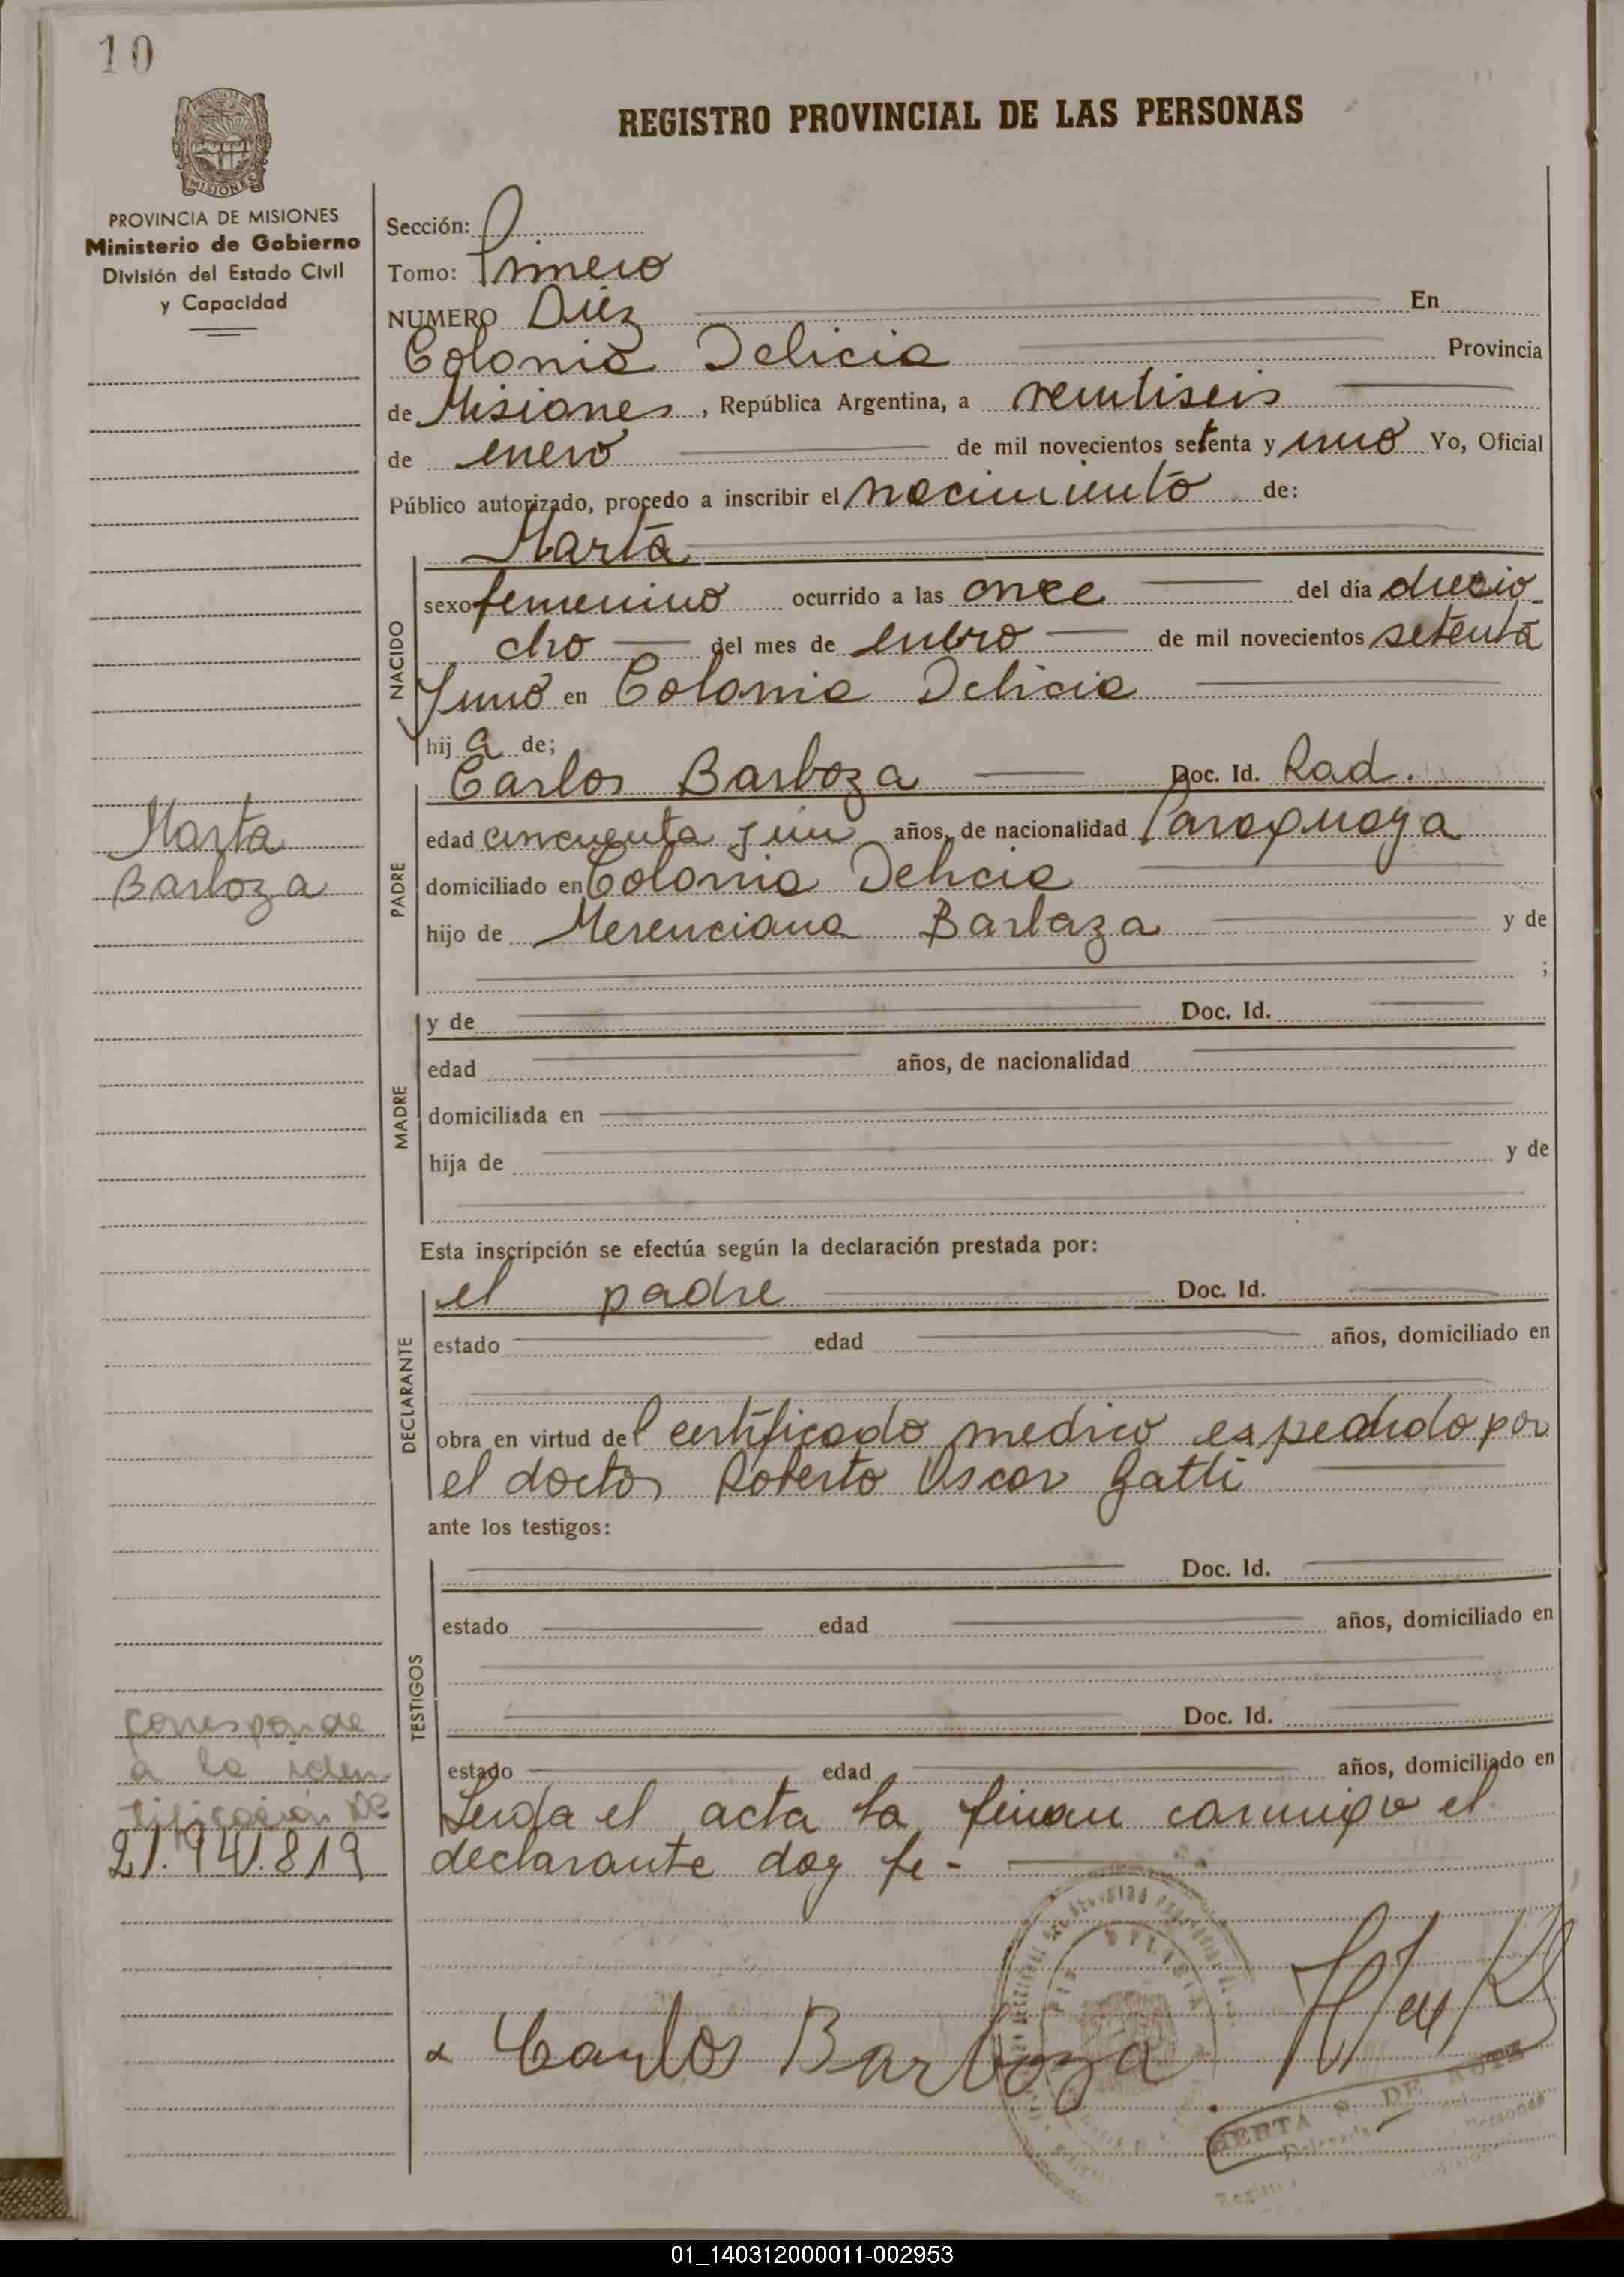 10
REGISTRO PROVINCIAL DE LAS PERSONAS
PROVINCIA DE MISIONES
Ministerio de Gobierno
División del Estado Civil
y Capacidad
Sección:
Tomo: Primero
NUMERO Diez En
Colonia Delicia Provincia
de Misiones, República Argentina, a veintiseis
de enero de mil novecientos setenta y uno Yo, Oficial
Público autorizado, procedo a inscribir el nacimiento de:
Marta
NACIDO
sexo femenino ocurrido a las once del día diecio
cho del mes de enero de mil novecientos setenta
y uno en Colonia Delicia
hij a de;
Carlos Barboza Doc. Id. Rad.
PADRE
edad cincuenta y un años, de nacionalidad Paraguaya
domiciliado en Colonia Delicia
hijo de Merenciana Barboza y de
;
Marta
Barboza
MADRE
y de Doc. Id.
edad años, de nacionalidad
domiciliada en
hija de y de
Esta inscripción se efectúa según la declaración prestada por:
DECLARANTE
el padre Doc. Id.
estado edad años, domiciliado en
obra en virtud del certificado medico espedido por
el doctor Roberto Oscar Gatti
ante los testigos:
TESTIGOS
Doc. Id.
estado edad años, domiciliado en
Doc. Id.
estado edad años, domiciliado en
Leida el acta la firman conmigo el
declarante doy fe -
corresponde
a la iden
tificación
21.941.819
Carlos Barboza
BERTA DE
01_140312000011-002953